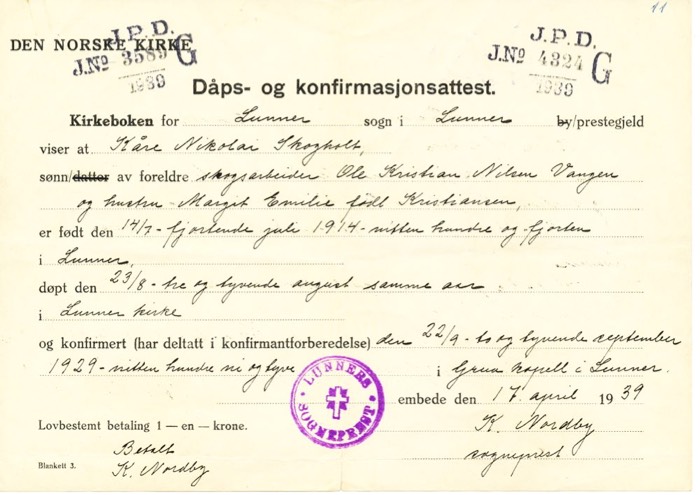 11
DEN NORSKE KIRKE
J.P.D.
J.Nº 3589 G
1939
J.P.D.
J.Nº 4324 G
1939
Dåps- og konfirmasjonsattest.
Kirkeboken for Lunner sogn i Lunner by/prestegjeld
viser at Kåre Nikolai Skogholt,
sønn/datter av foreldre skogsarbeider Ole Kristian Nilsen Vangen
og hustru Margit Emilie født Kristiansen,
er født den 14/7 - fjortende juli 1914 - nitten hundre og fjorten
i Lunner,
døpt den 23/8 - tre og tyvende august samme aar
i Lunner kirke
og konfirmert (har deltatt i konfirmantforberedelse) den 22/9 - to og tyvende september
1929 - nitten hundre ni og tyve i Grua kapell i Lunner.
LUNNERS SOGNEPREST
embede den 17. april 1939
Lovbestemt betaling 1 — en — krone.
K. Nordby
sogneprest
Betalt
K. Nordby
Blankett 3.